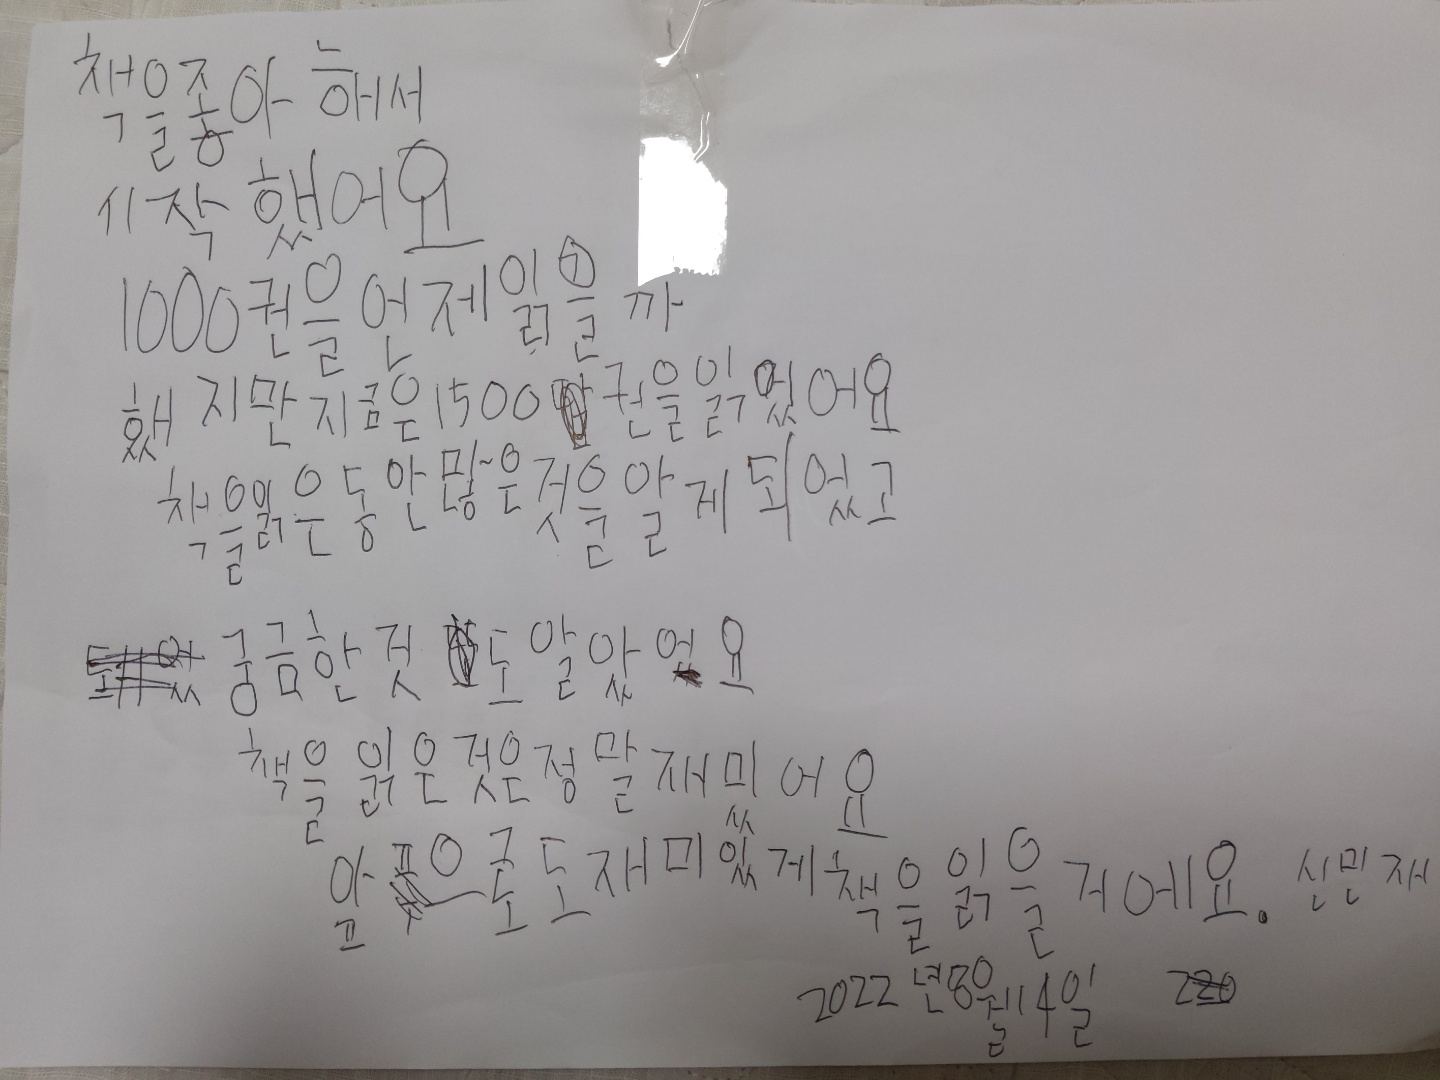 책을좋아 해서
시작 했어요
1000권을 언제 읽을 까
했지만 지금은 1500 권을 읽었어요
책을 읽은 동안 많은 것을 알게 되었고
궁금한 것 도 알았어요
책을 읽은 것은 정말 재밌어요
앞으로도 재미있게 책을 읽을 거에요. 신민재
2022년 8월 14일